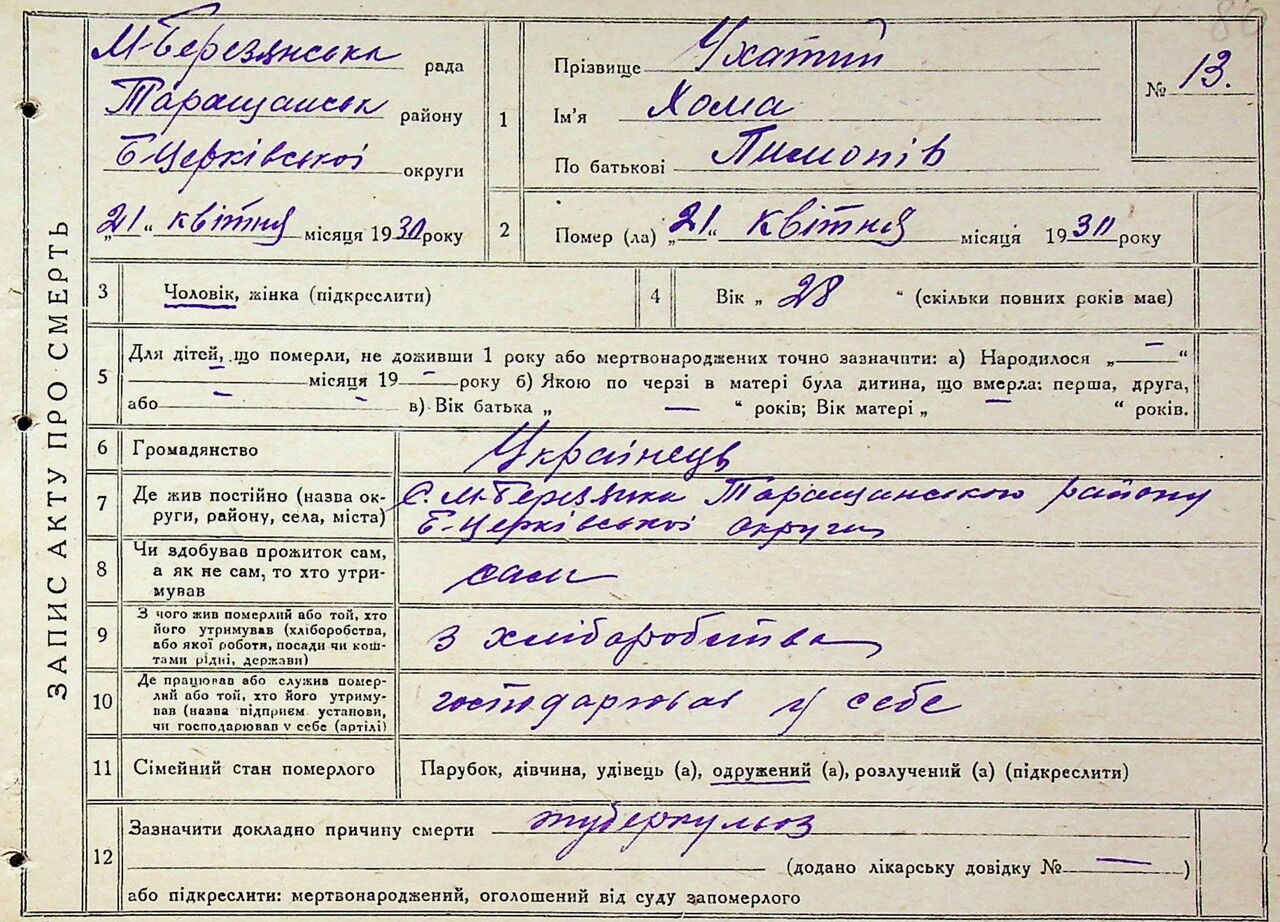 ЗАПИС АКТУ ПРО СМЕРТЬ
М-Березянська рада
Таращанськ району
Б-Церківської округи
„21“ квітня місяця 1930 року
1
Прізвище Ухатий
Ім'я Хома
По батькові Пимонів
№ 13.
2
Помер (ла) „21“ квітня місяця 1930 року
3 Чоловік, жінка (підкреслити)
4 Вік „ 28 “ (скільки повних років має)
5
Для дітей, що померли, не доживши 1 року або мертвонароджених точно зазначити: а) Народилося „ — “
— місяця 19 — року б) Якою по черзі в матері була дитина, що вмерла: перша, друга,
або — — в) Вік батька „ — “ років; Вік матері „ — “ років.
6 Громадянство Українець
7 Де жив постійно (назва ок-
руги, району, села, міста)
с. М-Березянка Таращанського району
Б-Церківської округи
8
Чи здобував прожиток сам,
а як не сам, то хто утри-
мував
сам
9
З чого жив померлий або той, хто
його утримував (хліборобства,
або якої роботи, посади чи кош-
тами рідні, держави)
з хліборобства
10
Де працював або служив помер-
лий або той, хто його утриму-
вав (назва підприєм установи,
чи господарював у себе (артілі)
господарював у себе
11 Сімейний стан померлого Парубок, дівчина, удівець (а), одружений (а), розлучений (а) (підкреслити)
12
Зазначити докладно причину смерти туберкульоз
(додано лікарську довідку № — )
або підкреслити: мертвонароджений, оголошений від суду запомерлого